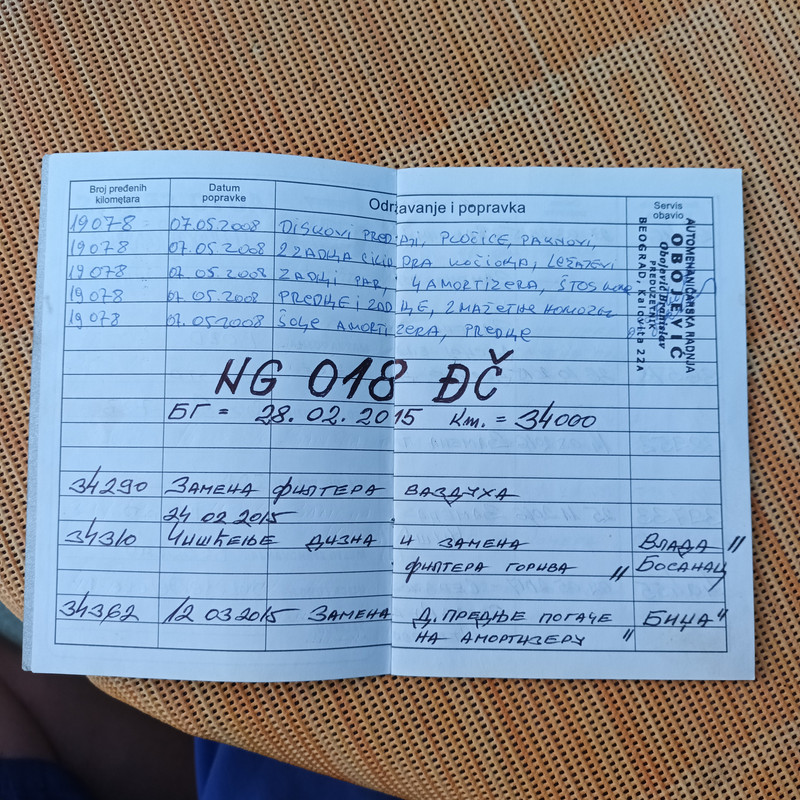 Broj pređenih kilometara
Datum popravke
Održavanje i popravka
Servis obavio
19078 07.05.2008 DISKOVI PREDNJI, PLOČICE, PAKNOVI,
19078 07.05.2008 2 ZADNJA KOČIONA, LEŽAJEVI
19078 07.05.2008 ZADNJI PAR, 4 AMORTIZERA, ŠTOS
19078 07.05.2008 PREDNJE I ZADNJE, 2 MAŽETNE
19078 07.05.2008 ŠOLJE AMORTIZERA, PREDNJE
AUTOMEHANIČARSKA RADNJA
OBOJEVIĆ
Obojević Branislav
PREDUZETNIK
BEOGRAD, Kalovita 22A
NG 018 ĐČ
БГ = 28.02.2015 Km. = 34000
34290 ЗАМЕНА ФИЛТЕРА ВАЗДУХА
24 02 2015
34310 ЧИШЋЕЊЕ ДИЗНА И ЗАМЕНА ВЛАДА "
ФИЛТЕРА ГОРИВА " БОСАНАЦ
34362 12 03 2015 ЗАМЕНА Д. ПРЕДЊЕ ПОГАЧЕ БИЏА "
НА АМОРТИЗЕРУ "